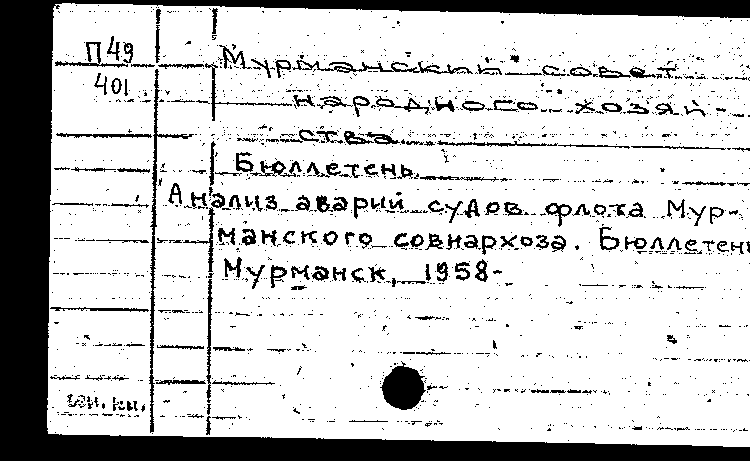 П49
401
Мурманский совет
народного хозяй-
ства
Бюллетень
Анализ аварий судов флота Мур-
манского совнархоза. Бюллетень
Мурманск, 1958-